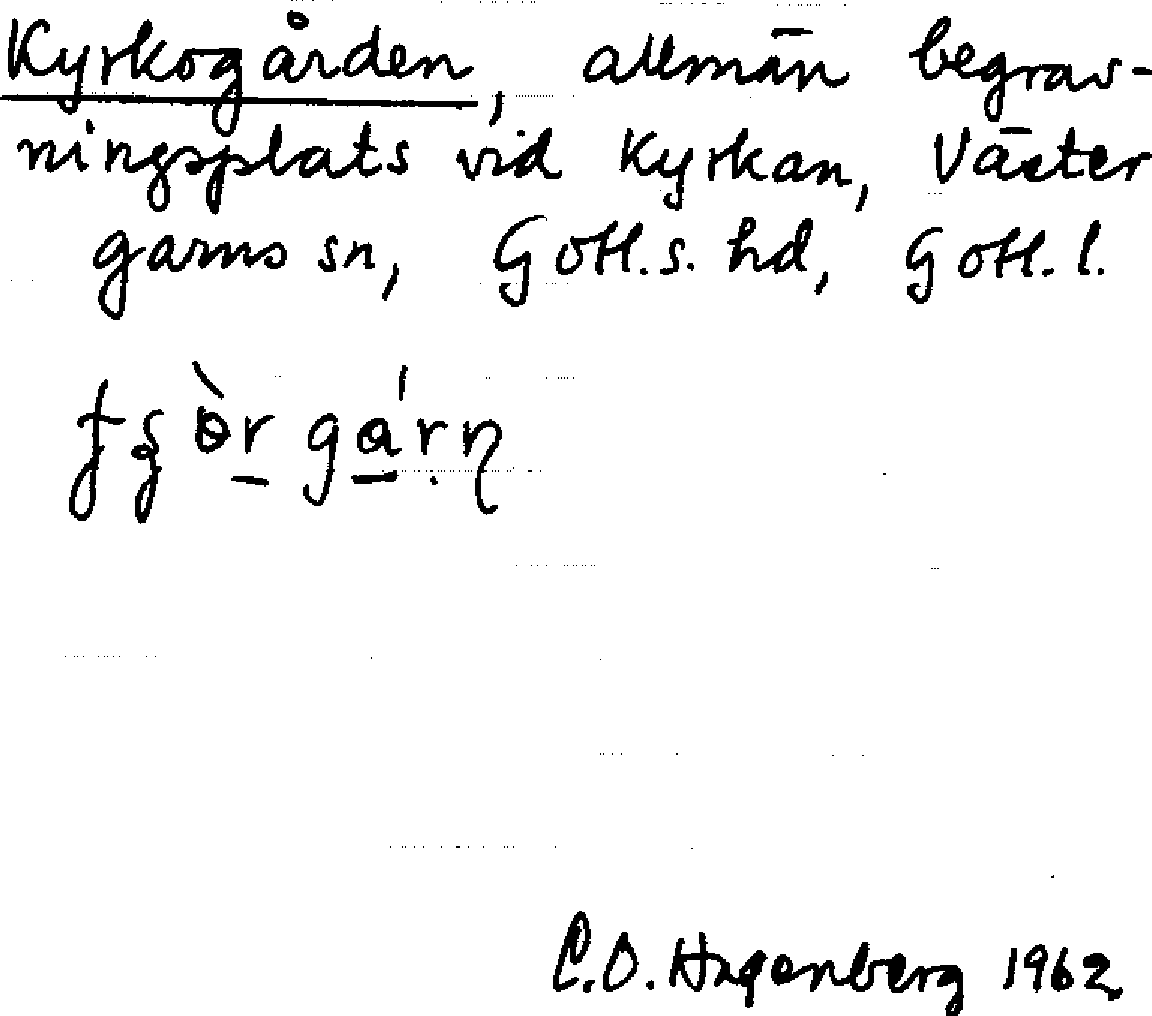 Kyrkogården, allmän begrav-
ningsplats vid Kyrkan, Väster
garns sn, Gotl. s. hd, Gotl. l.
C.O. Hagenberg 1962